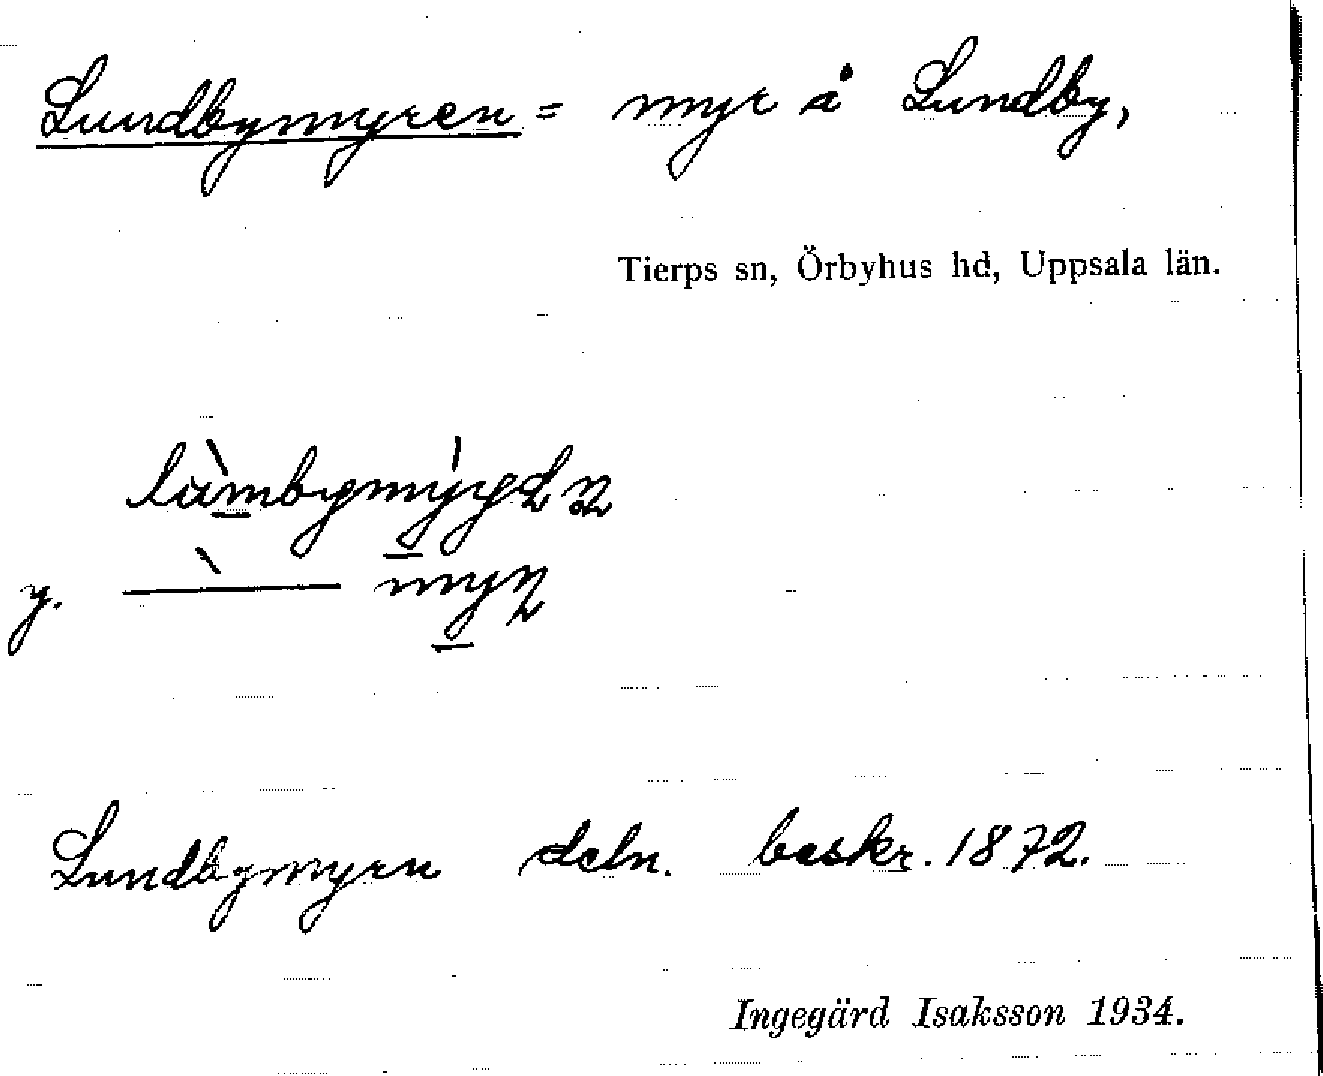 Lundbymyren = myr å Lundby,
Tierps sn, Örbyhus hd, Uppsala län.
y.
Lundbymyrn deln. beskr. 1872.
Ingegärd Isaksson 1934.